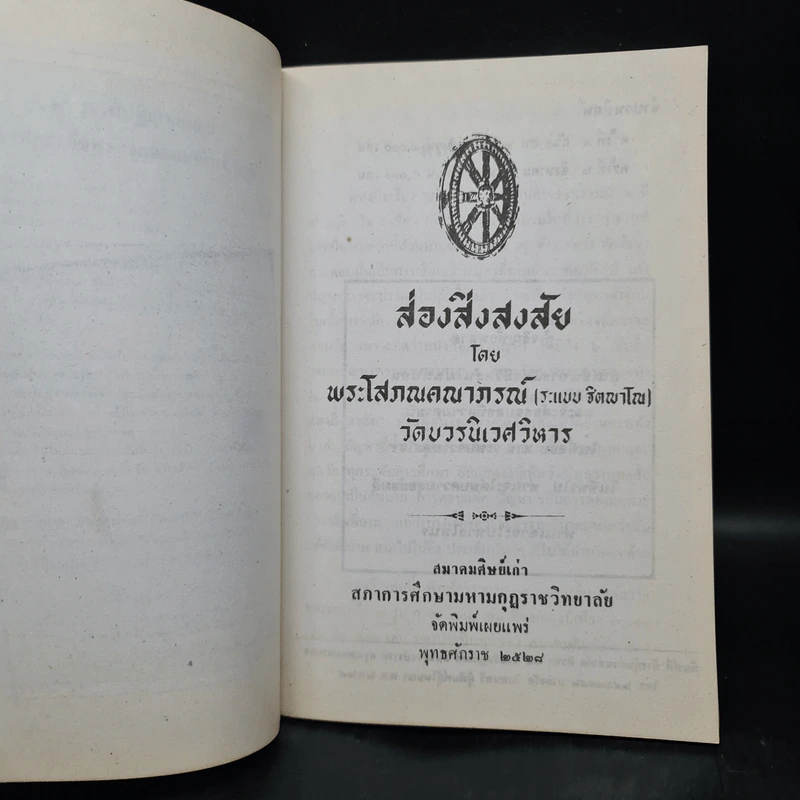 ส่องสิ่งสงสัย
โดย
พระโสภณคณาภรณ์ (ระแบบ ฐิตญาโณ)
วัดบวรนิเวศวิหาร
สมาคมศิษย์เก่า
สภาการศึกษามหามกุฏราชวิทยาลัย
จัดพิมพ์เผยแพร่
พุทธศักราช ๒๕๒๘